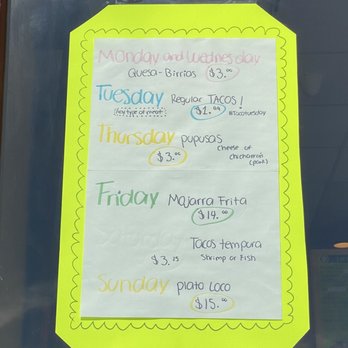 Monday and Wednesday
Quesa-Birrias $3.00
Tuesday Regular TACOS!
(Any type of meat) $1.99 #tacotuesday
Thursday pupusas
$3.00 cheese or
chicharron
(pork)
Friday Mojarra Frita
$14.00
Saturday Tacos tempura
$3.75 Shrimp or Fish
Sunday plato Loco
$15.00